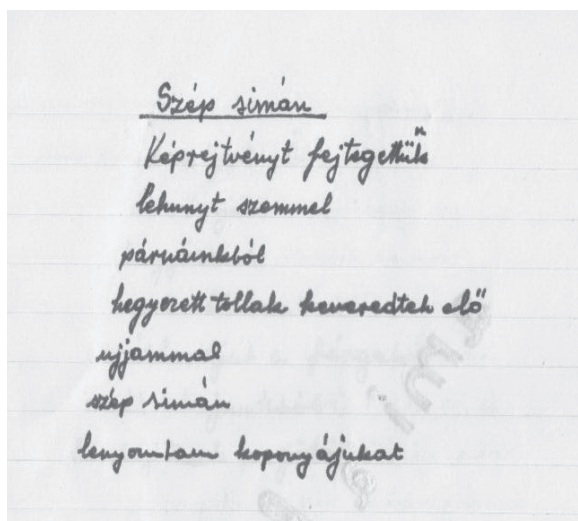 Szép simán
Képrejtvényt fejtegettük
lehunyt szemmel
párnáinkból
hegyezett tollak keveredtek elő
ujjammal
szép simán
lenyomtam koponyájukat